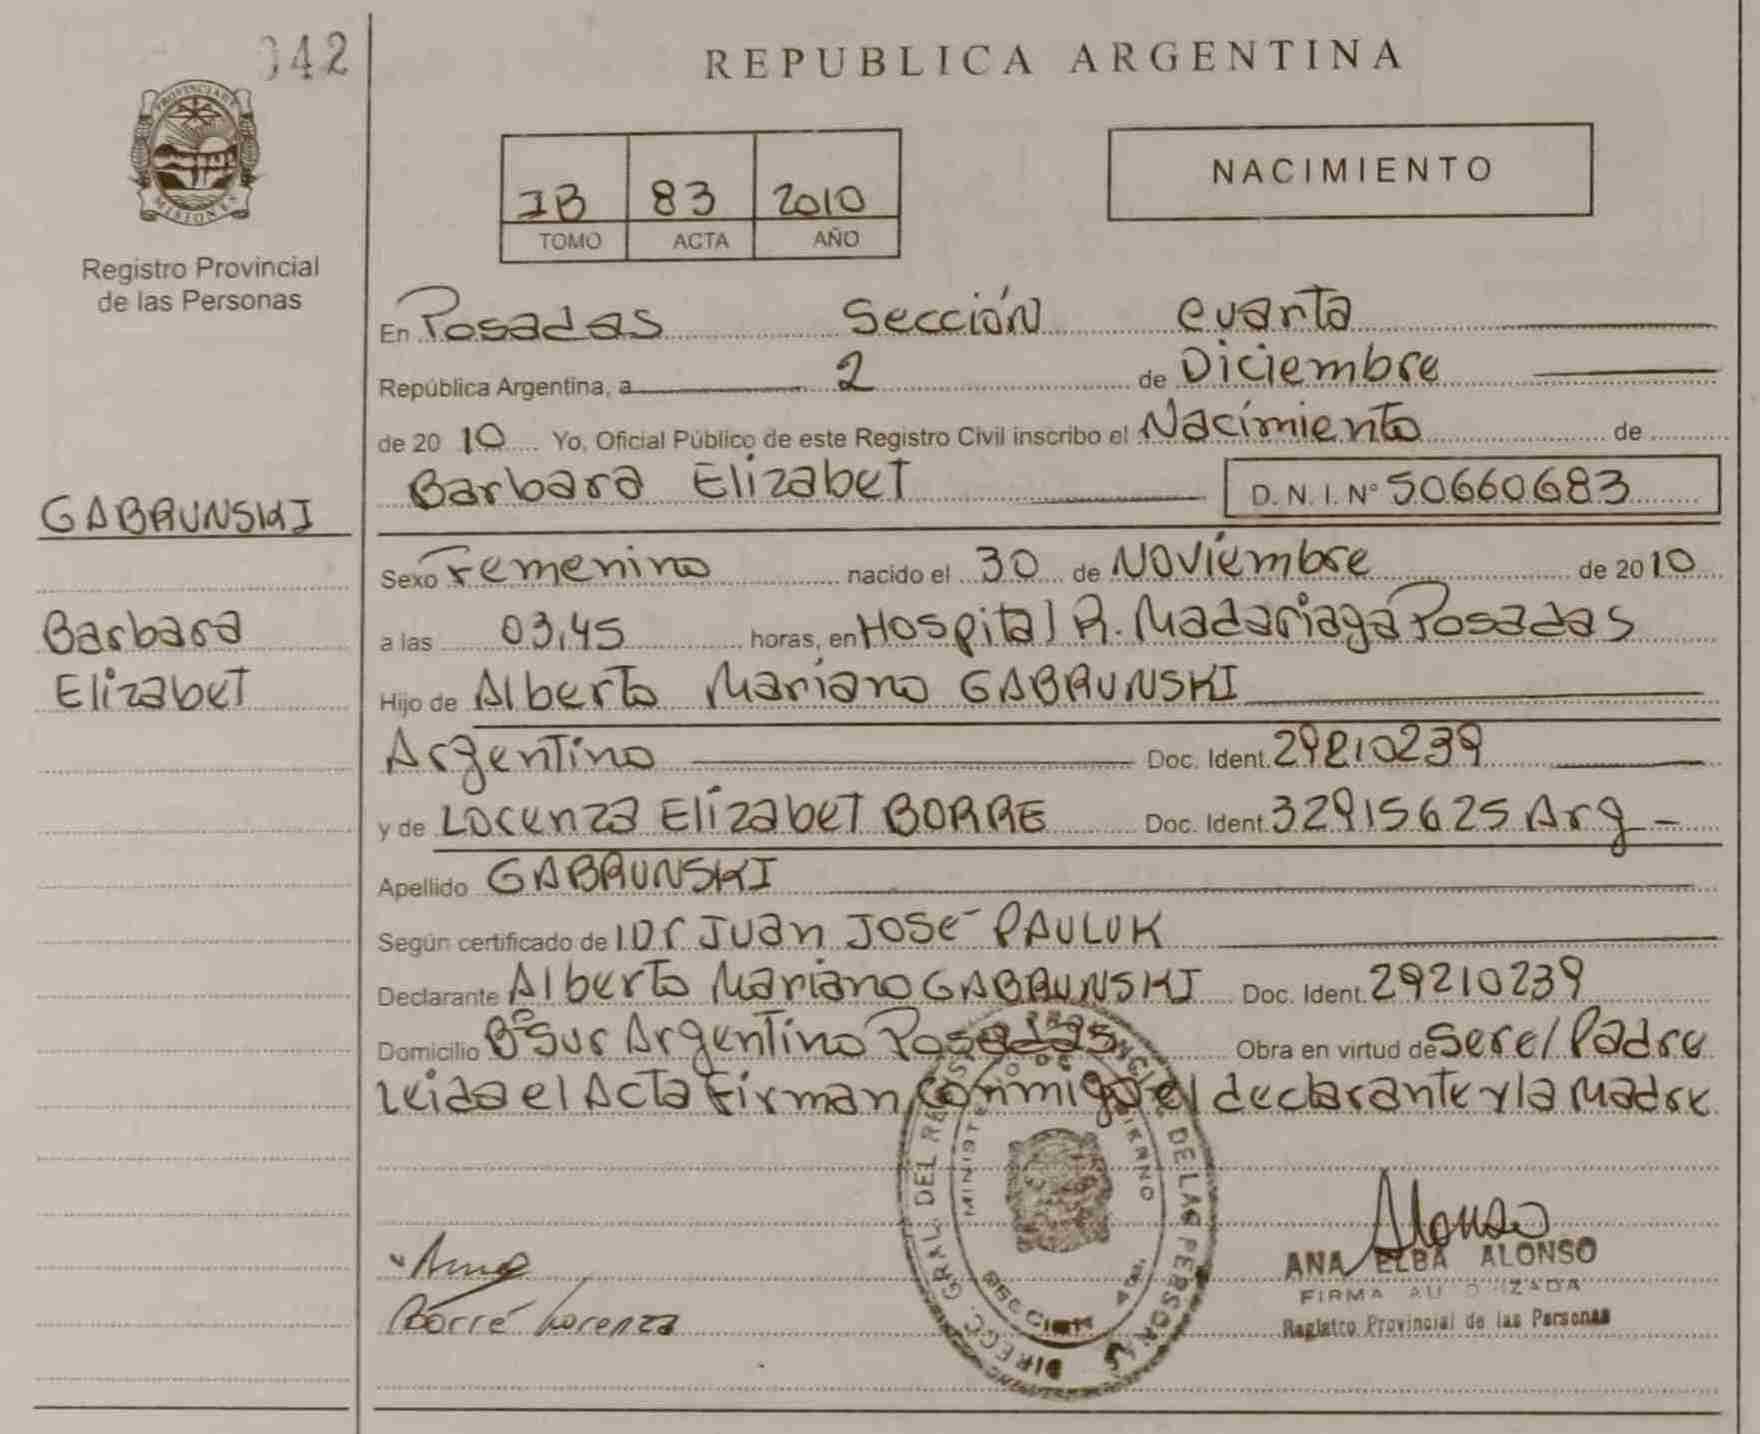 042
REPUBLICA ARGENTINA
PROVINCIA DE
MISIONES
Registro Provincial
de las Personas
IB 83 2010
TOMO ACTA AÑO
NACIMIENTO
En Posadas Sección cuarta
República Argentina, a 2 de Diciembre
de 2010 Yo, Oficial Público de este Registro Civil inscribo el Nacimiento de
Barbara Elizabet D. N. I. Nº 50660683
GABRUNSKI
Barbara
Elizabet
Sexo Femenino nacido el 30 de Noviembre de 2010
a las 03,45 horas, en Hospital R. Madariaga Posadas
Hijo de Alberto Mariano GABRUNSKI
Argentino Doc. Ident. 29210239
y de Lorenza Elizabet BORRE Doc. Ident. 32915625 Arg
Apellido GABRUNSKI
Según certificado de 1 Dr Juan José PAULUK
Declarante Alberto Mariano GABRUNSKI Doc. Ident. 29210239
Domicilio Bº Sur Argentino Posadas Obra en virtud de Ser el Padre
Leida el Acta Firman conmigo el declarante y la Madre
DIRECC. GRAL. DEL DE LAS PERSONAS
Borré Lorenza
Alonso
ANA ELBA ALONSO
FIRMA AUTORIZADA
Registro Provincial de las Personas